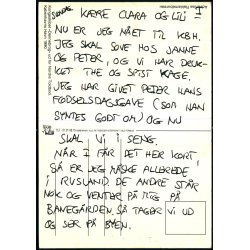 SØNDAG. KÆRE CLARA OG LILI
NU ER JEG NÅET TIL KBH.
JEG SKAL SOVE HOS JANNE
OG PETER, OG VI HAR DRUK-
KET THE OG SPIST KAGE.
JEG HAR GIVET PETER HANS
FØDSELSDAGSGAVE (SOM HAN
SYNTES GODT OM) OG NU
SKAL VI I SENG.
NÅR I FÅR DET HER KORT,
SÅ ER JEG MÅSKE ALLEREDE
I RUSLAND. DE ANDRE STÅR
NOK OG VENTER PÅ MIG PÅ
BANEGÅRDEN. SÅ TAGER VI UD
OG SER PÅ BYEN.